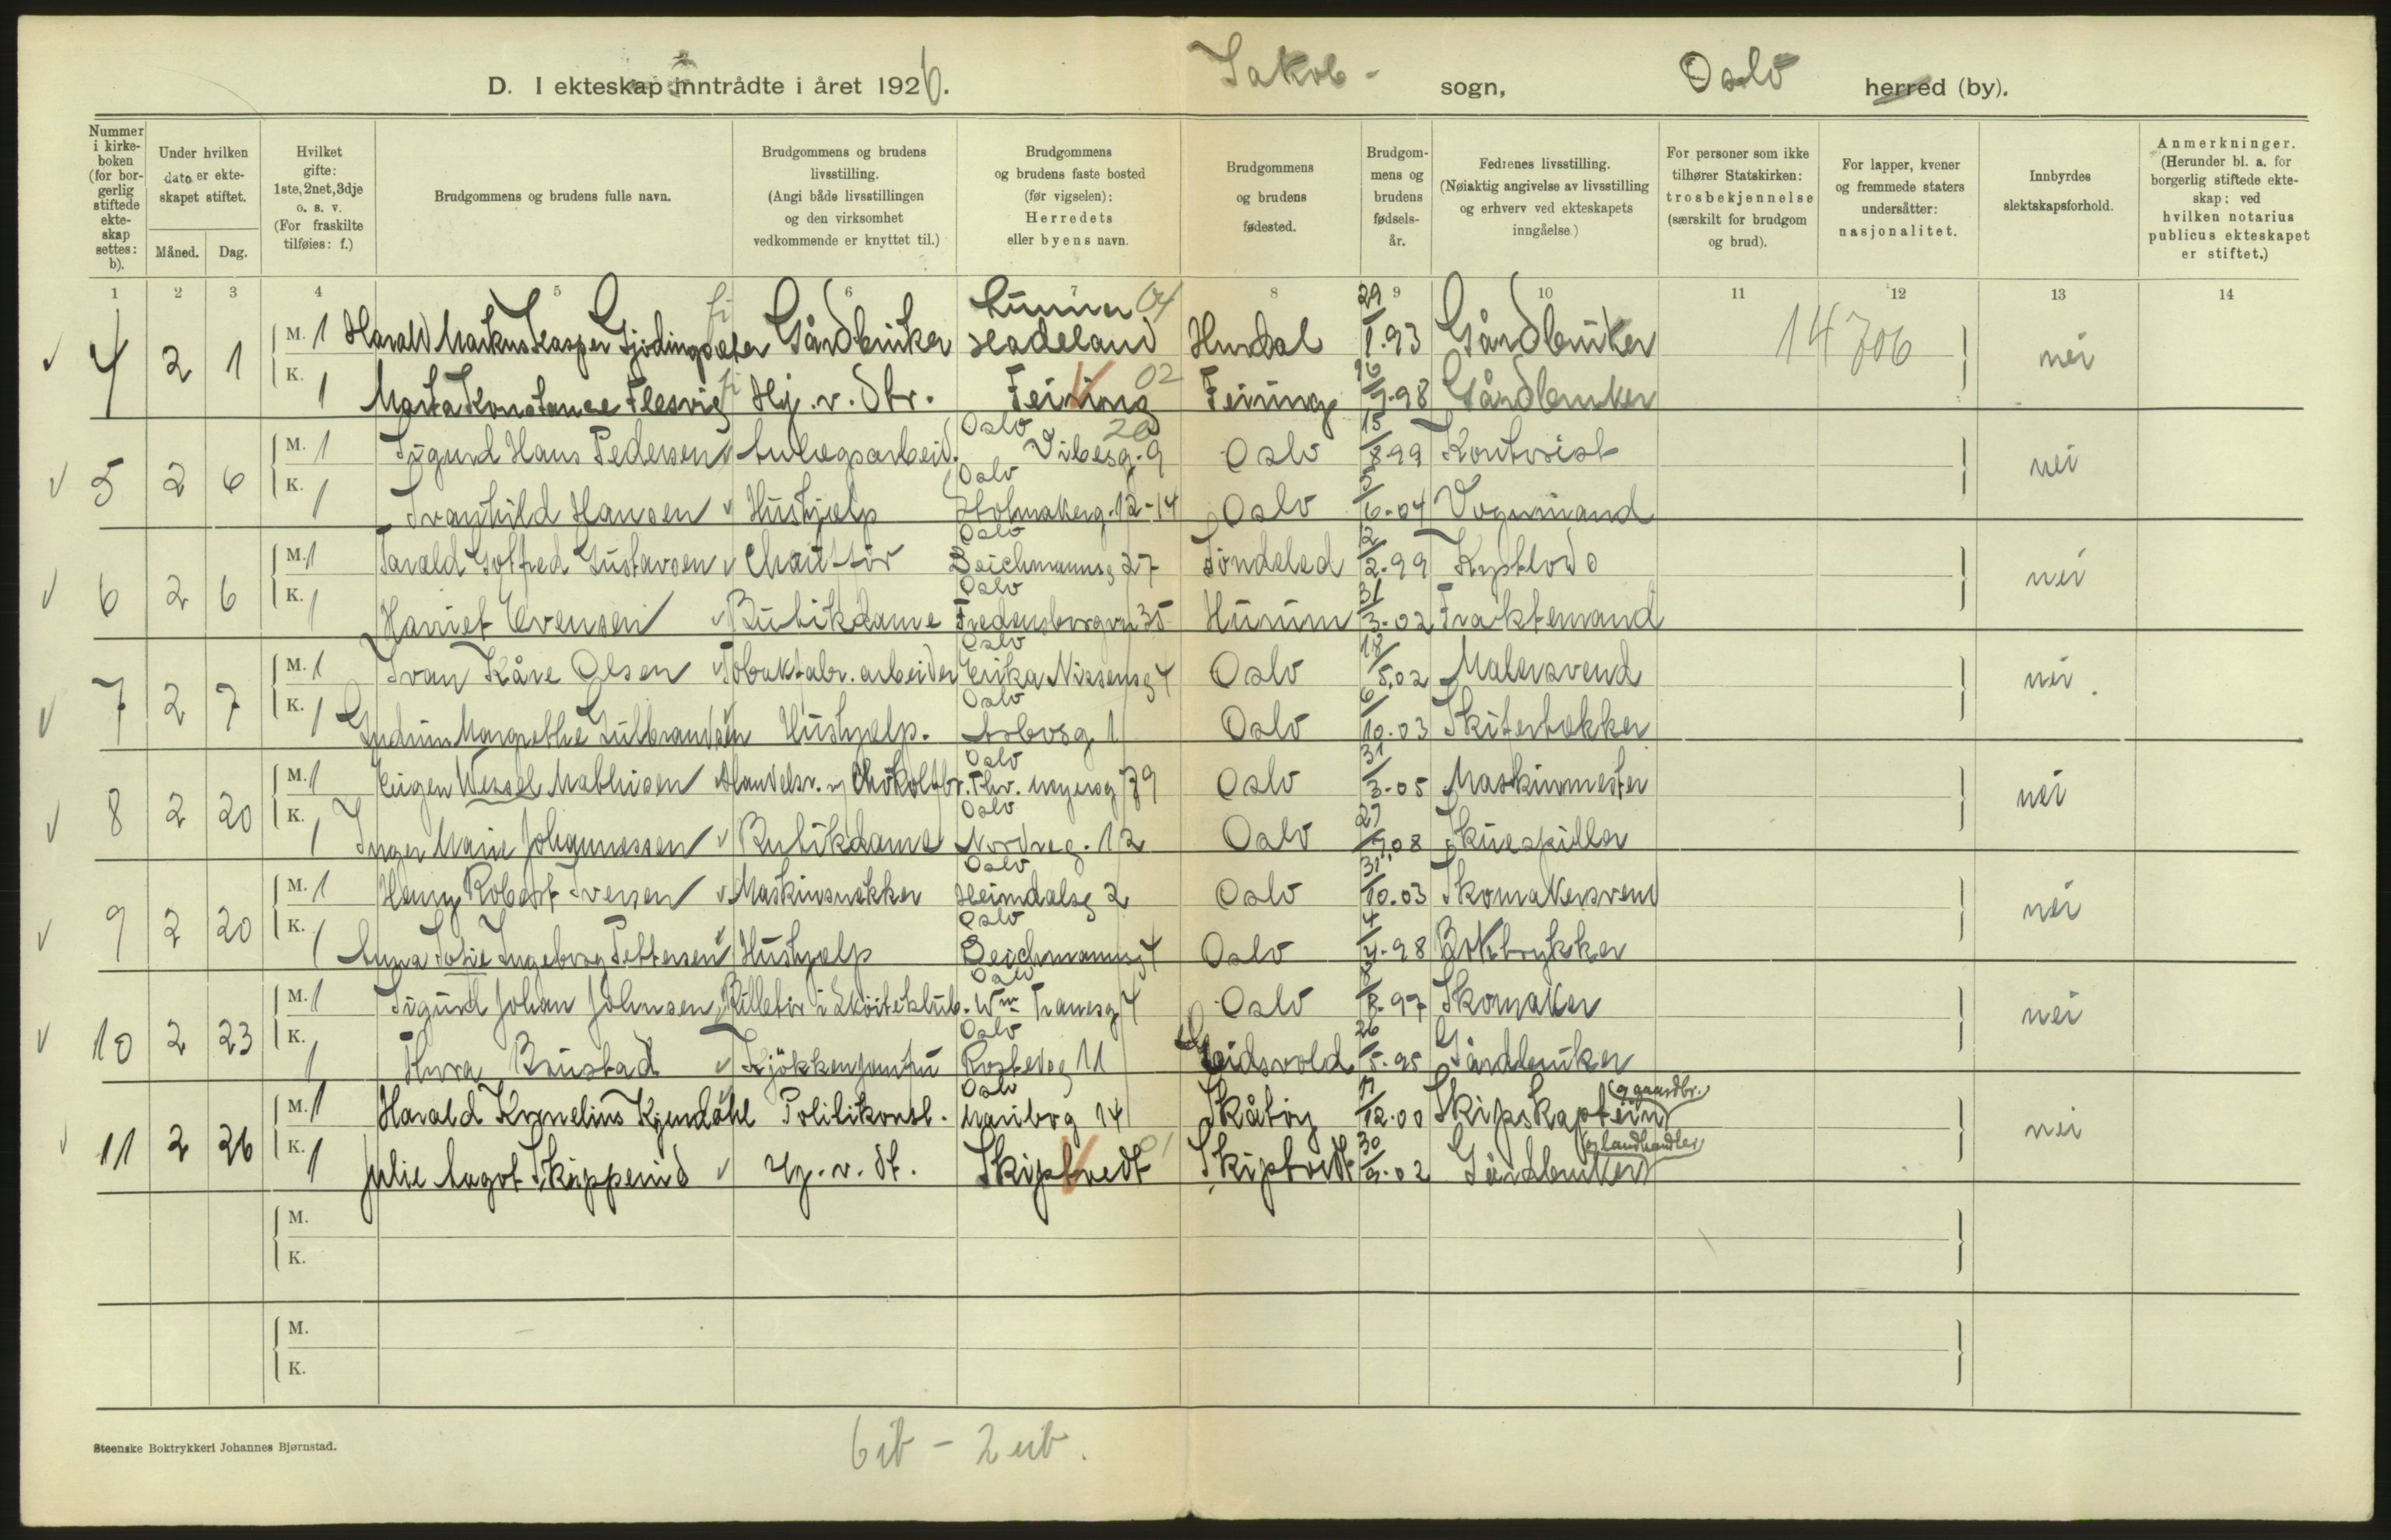 D. I ekteskap inntrådte i året 1926. Jakob - sogn, Oslo herred (by).
Nummer i kirkeboken (for borgerlig stiftede ekteskap settes: b).
Under hvilken dato er ekteskapet stiftet.
Måned. Dag.
Hvilket gifte: 1ste, 2net, 3dje o. s. v. (For fraskilte tilføies: f.)
Brudgommens og brudens fulle navn.
Brudgommens og brudens livsstilling. (Angi både livsstillingen og den virksomhet vedkommende er knyttet til.)
Brudgommens og brudens faste bosted (før vigselen): Herredets eller byens navn.
Brudgommens og brudens fødested.
Brudgommens og brudens fødselsår.
Fedrenes livsstilling. (Nøiaktig angivelse av livsstilling og erhverv ved ekteskapets inngåelse)
For personer som ikke tilhører Statskirken: trosbekjennelse (særskilt for brudgom og brud).
For lapper, kvener og fremmede staters undersåtter: nasjonalitet.
Innbyrdes slektskapsforhold.
Anmerkninger. (Herunder bl. a. for borgerlig stiftede ekteskap: ved hvilken notarius publicus ekteskapet er stiftet.)
1 2 3 4 5 6 7 8 9 10 11 12 13 14
4 2 1 M. 1 Harald Markus Kasper Gårdbruker Lunner Hadeland 04 Hurdal 29/1.93 Gårdbruker 14706 nei
K. 1 Marta Konstanse Flesvig Hj. v. Dtr. Feiring 02 Feiring 98 Gårdbruker
5 2 6 M. 1 Sigurd Hans Pedersen Anlegsarbeid. Oslo Vibesg. 9 20 Oslo 15/8.99 Kontorist nei
K. 1 Svanhild Hansen Hushjelp Oslo Holmakerg. 12-14 Oslo 6-04 Vognmand
6 2 6 M. 1 Tarald Gotfred Gustavsen Chauffør Oslo Deichmannsg 27 Søndeled 2.99 nei
K. 1 Harriet Evensen Butikdame Oslo Fredensborgvn 35 Hurum 3-02
7 2 7 M. 1 Ivan Kåre Olsen Tobakfabr. arbeider Oslo Erika Nissensg 4 Oslo 18/5.02 Malersvend nei.
K. 1 Gudrun Margrethe Gulbrandsen Hushjelp. Oslo 1 Oslo 6/10.03
8 2 20 M. 1 Eugen Wessel Mathisen Oslo Thv. Meyersg 79 Oslo 31/3-05 Maskinmester nei
K. 1 Inger Marie Johannessen Butikdame Oslo Nordreg. 12 Oslo 08 Skuespiller
9 2 20 M. 1 Henry Robert Iversen Maskinsnekker Oslo Heimdalsg 2 Oslo 31/10.03 Skomakersvend nei
K. 1 Anna Sofie Ingeborg Pettersen Hushjelp Oslo Deichmannsg 4 Oslo 98 Boktrykker
10 2 23 M. 1 Sigurd Johan Johnsen Billetør i Skøiteklub. Oslo Wm Tranesg 4 Oslo 8.97 Skomaker nei
K. 1 Thora Brustad Kjøkkenjomfru Oslo Rostedsg 11 Eidsvold 26/5.95 Gårdbruker
11 2 26 M. 1 Harald Kornelius Kjendahl Politikonst. Oslo Maribog 14 Skåtøy 12.00 Skipskaptein (g gaardbr.) nei
K. 1 Julie Aagot Skipperud Hj. v. St. Skiptvedt 01 Skiptvedt 30/9.02 Gårdbruker (g landhandler)
M.
K.
M.
K.
Steenske Boktrykkeri Johannes Bjørnstad.
6 ib - 2 ub.